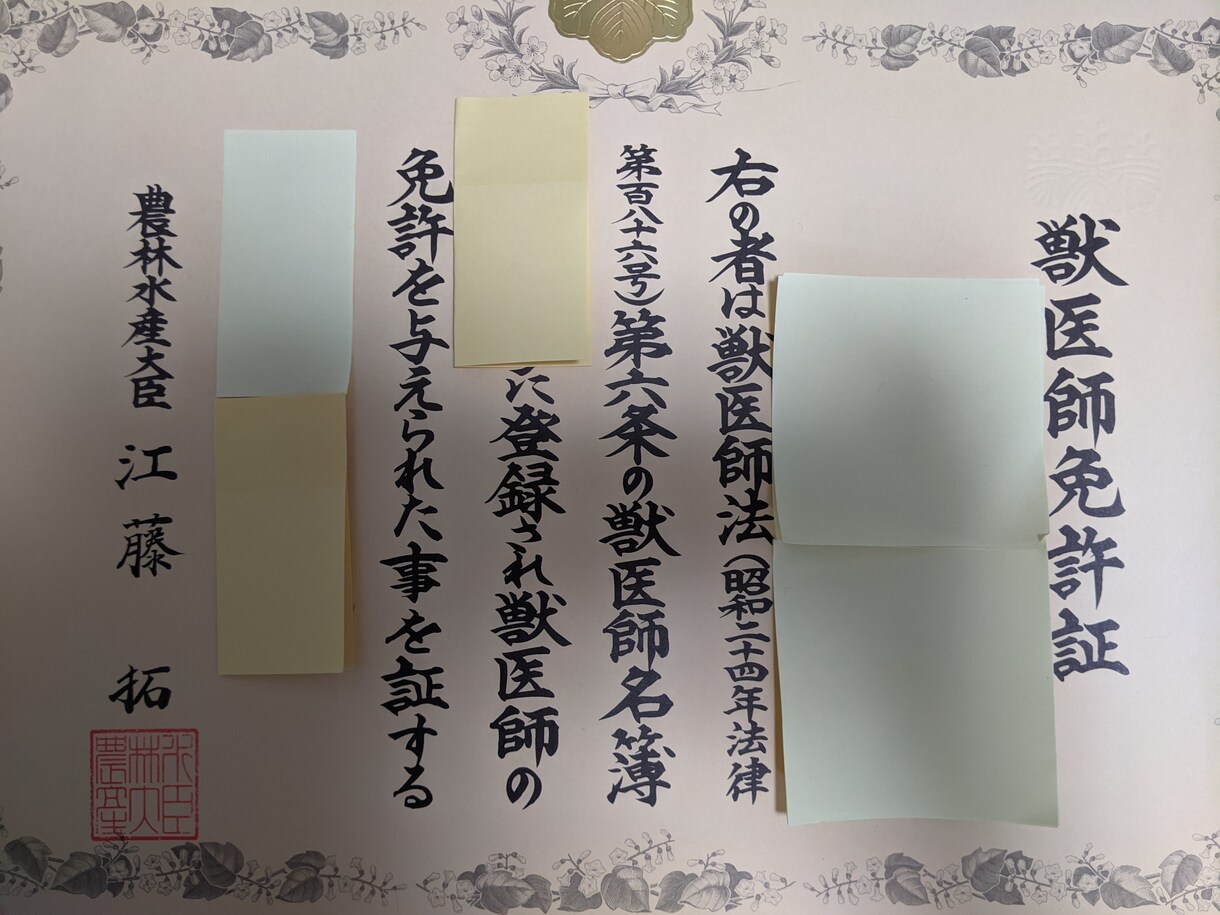 獣医師免許証
右の者は獣医師法（昭和二十四年法律
第百八十六号）第六条の獣医師名簿
に登録され獣医師の
免許を与えられた事を証する
農林水産大臣 江藤 拓
農林水産大臣